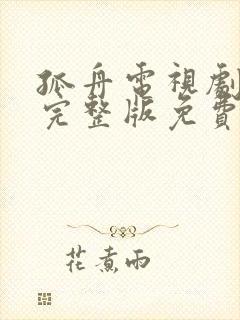 孤舟電視劇
完整版免費
花煮雨